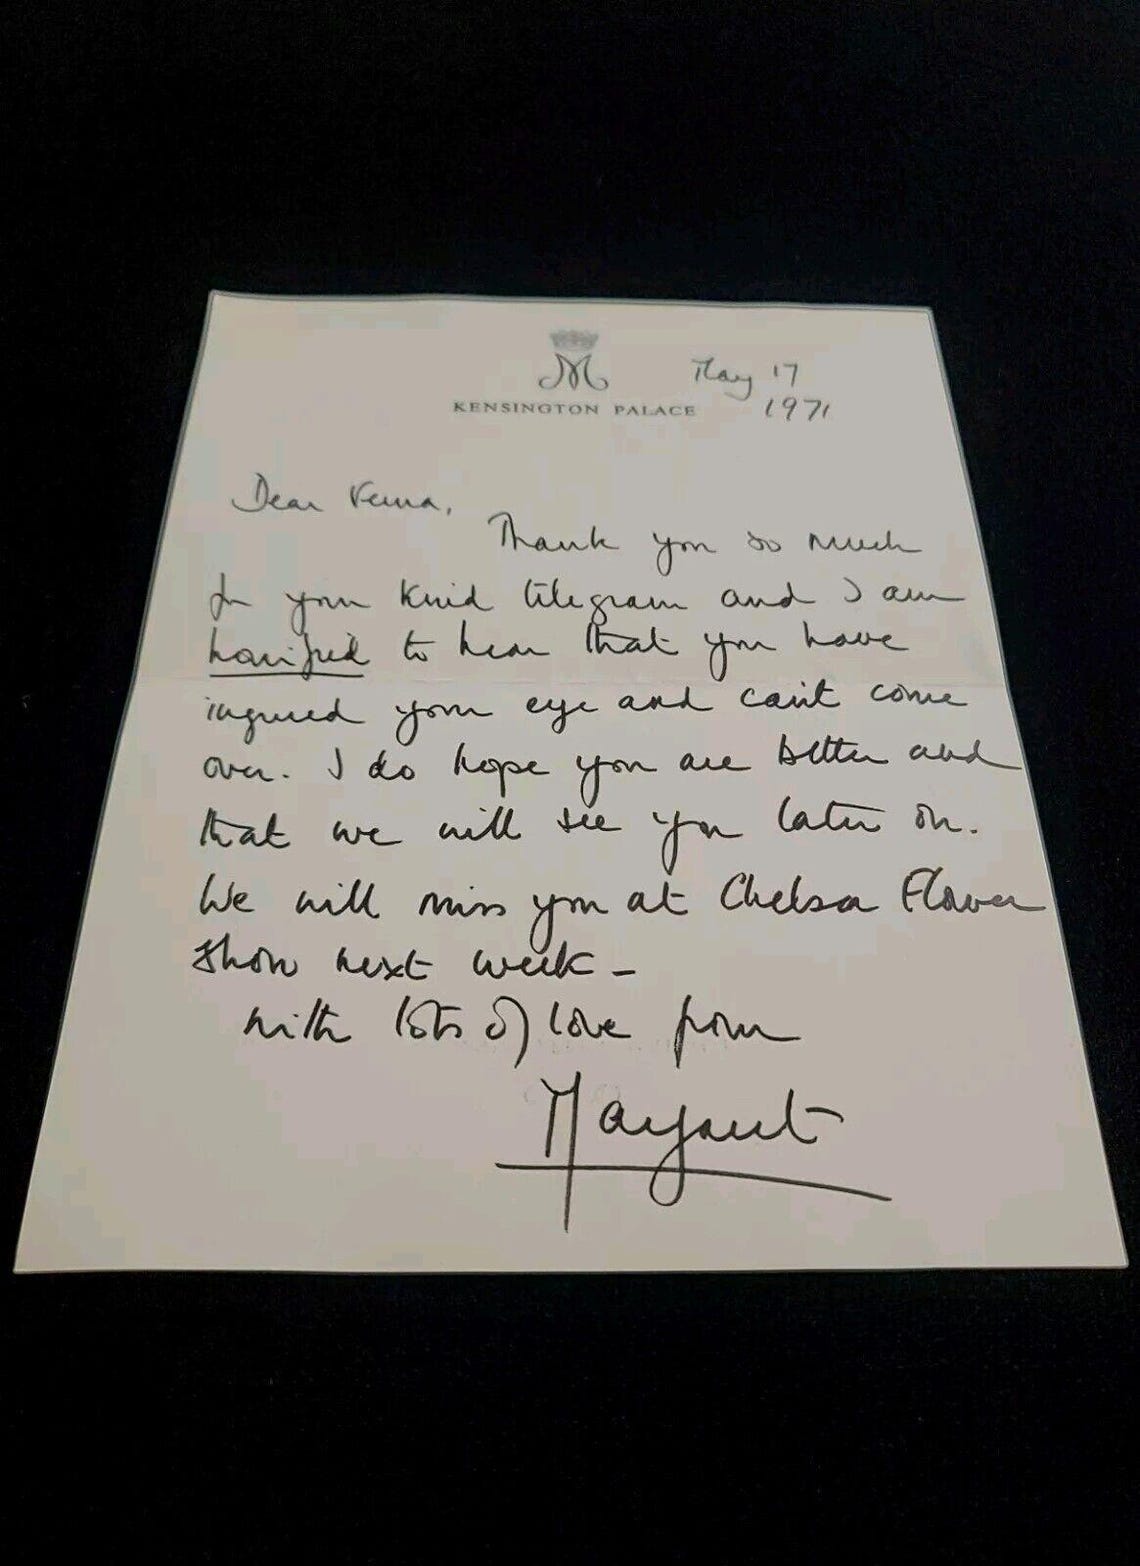 M
KENSINGTON PALACE
May 17
1971
Dear
Thank you so much
for your kind telegram and I am
horrified to hear that you have
injured your eye and can't come
over. I do hope you are better and
that we will see you later on.
We will miss you at Chelsea Flower
Show next week -
with lots of love from
Margaret